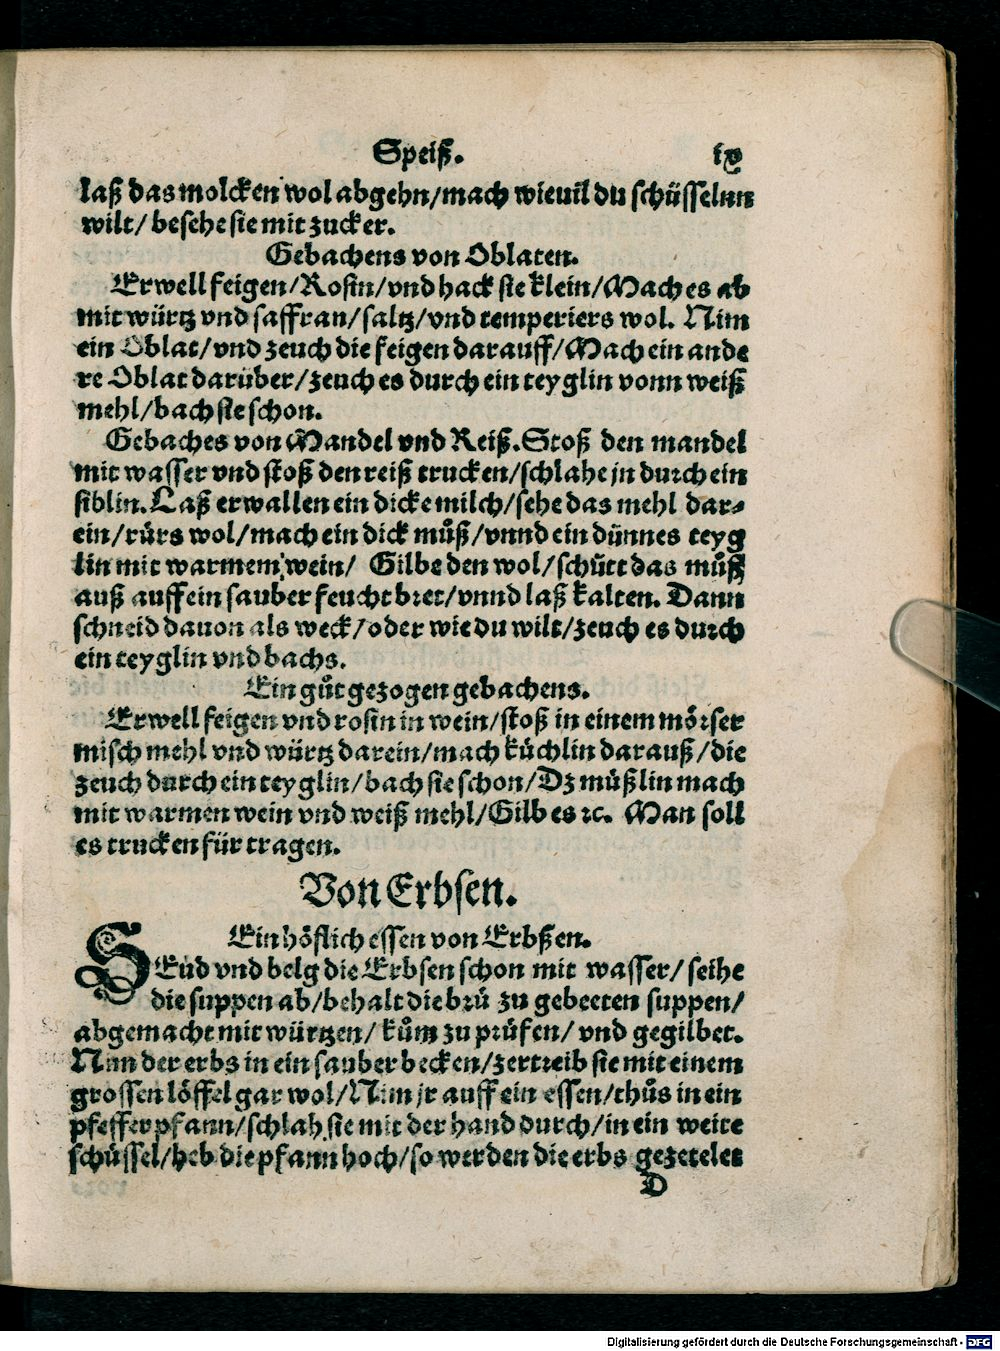 Speiß. ix
laß das molcken wol abgehn/mach wieuil du schüsselnn
wilt/ besehe sie mit zucker.
Gebachens von Oblaten.
Erwell feigen/Rosin/vnd hack sie klein/Mach es ab
mit würtz vnd saffran/saltz/vnd temperiers wol. Nim
ein Oblat/vnd zeuch die feigen darauff/Mach ein ande
re Oblat darüber/zeuch es durch ein teyglin vonn weiß
mehl/bach sie schon.
Gebaches von Mandel vnd Reiß. Stoß den mandel
mit wasser vnd stoß den reiß trucken/schlahe jn durch ein
siblin. Laß erwallen ein dicke milch/sehe das mehl dar-
ein/růrs wol/mach ein dick můß/vnnd ein dünnes teyg
lin mit warmem wein/ Gilbe den wol/schütt das můß
auß auff ein sauber feucht bret/vnnd laß kalten. Dann
schneid dauon als weck/oder wie du wilt/zeuch es durch
ein teyglin vnd bachs.
Ein gůt gezogen gebachens.
Erwell feigen vnd rosin in wein/stoß in einem mörser
misch mehl vnd würtz darein/mach küchlin darauß/die
zeuch durch ein teyglin/bach sie schon/Dz můßlin mach
mit warmen wein vnd weiß mehl/Gilb es ꝛc. Man soll
es trucken für tragen.
Von Erbsen.
Ein höflich essen von Erbßen.
SEud vnd belg die Erbsen schon mit wasser/ seihe
die suppen ab/behalt die brů zu gebeeten suppen/
abgemacht mit würtzen/ kům zu prüfen/ vnd gegilbet.
Nim der erbs in ein sauber becken/zertreib sie mit einem
grossen löffel gar wol/Nim jr auff ein essen/thůs in ein
pfefferpfann/schlah sie mit der hand durch/in ein weite
schüssel/heb die pfann hoch/so werden die erbs gezetelet
D
Digitalisierung gefördert durch die Deutsche Forschungsgemeinschaft - DFG